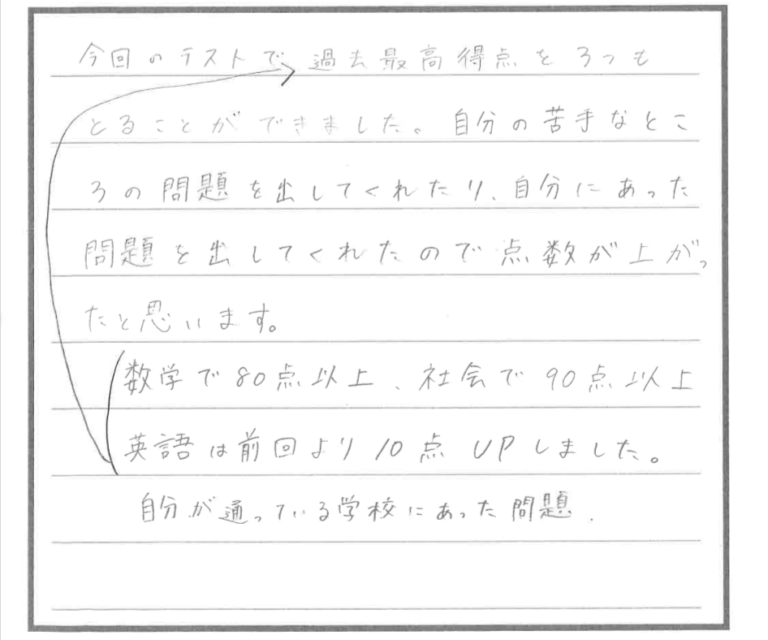 今回のテストで過去最高得点を3つも
とることができました。自分の苦手なとこ
ろの問題を出してくれたり、自分にあった
問題を出してくれたので点数が上がっ
たと思います。
数学で80点以上、社会で90点以上
英語は前回より10点UPしました。
自分が通っている学校にあった問題.